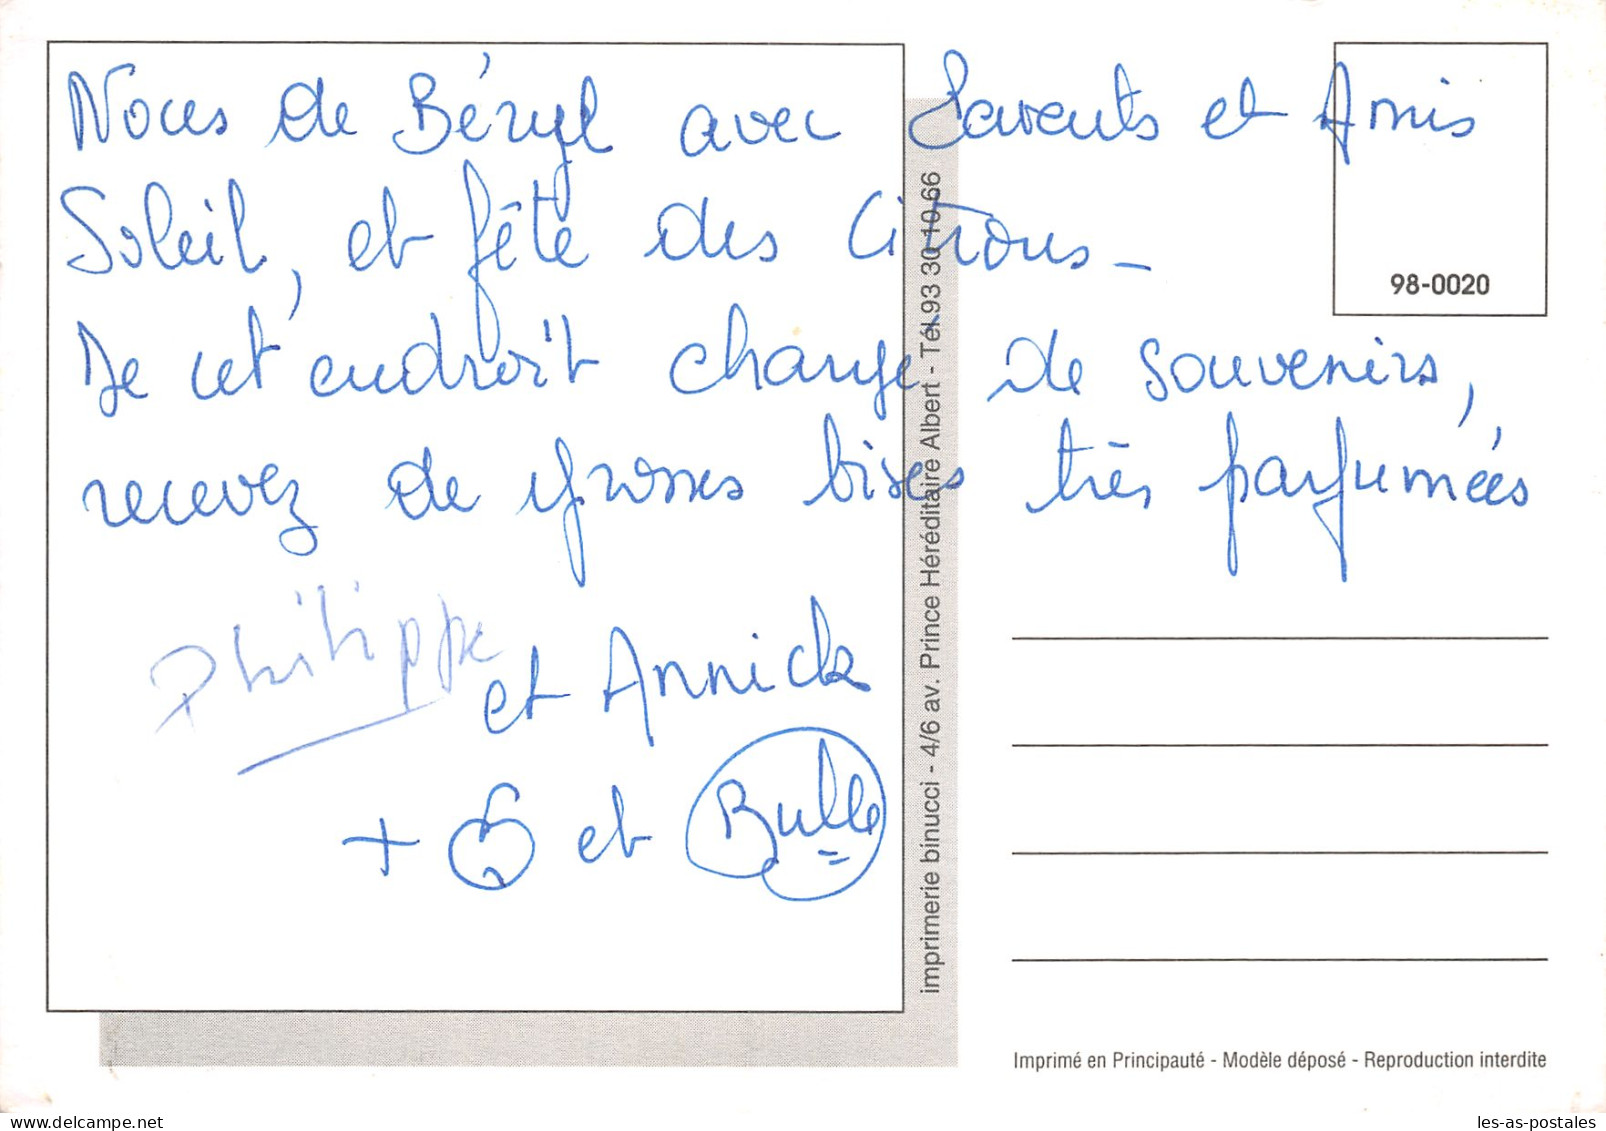 Noces de Béryl avec Parents et Amis
Soleil, et fête des Citrons -
De cet endroit chargé de souvenirs,
recevez de grosses bises très parfumées
Philippe
et Annick
+ et Bulle
98-0020
imprimerie binucci - 4/6 av. Prince Héréditaire Albert - Tél. 93 30 10 66
Imprimé en Principauté - Modèle déposé - Reproduction interdite
les-as-postales